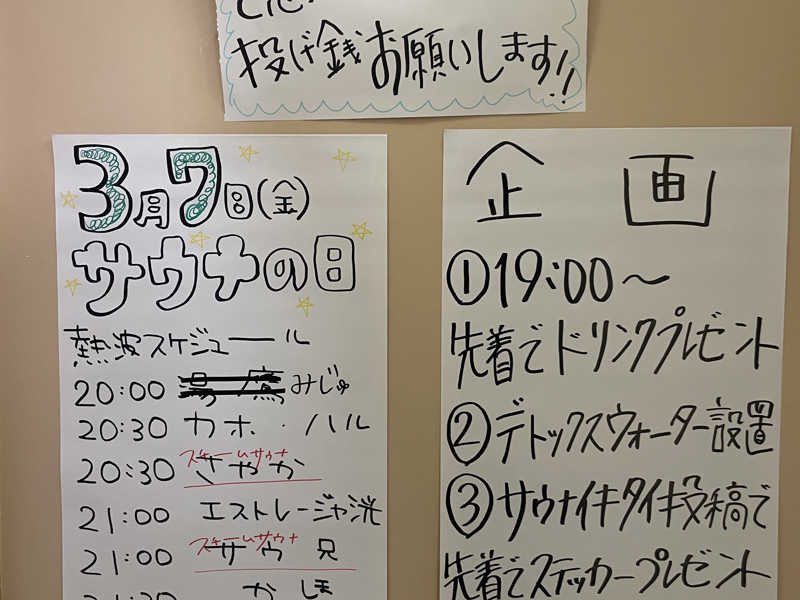 投げ銭お願いします!!
3月7日(金)
サウナの日
熱波スケジュール
20:00 みじゅ
20:30 カホ・ハル
スチームサウナ
20:30 さやか
21:00 エストレージャ洸
スチームサウナ
21:00 サウ兄
21:30 かしほ
企画
①19:00～
先着でドリンクプレゼント
②デトックスウォーター設置
③サウナイキタイ投稿で
先着でステッカープレゼント